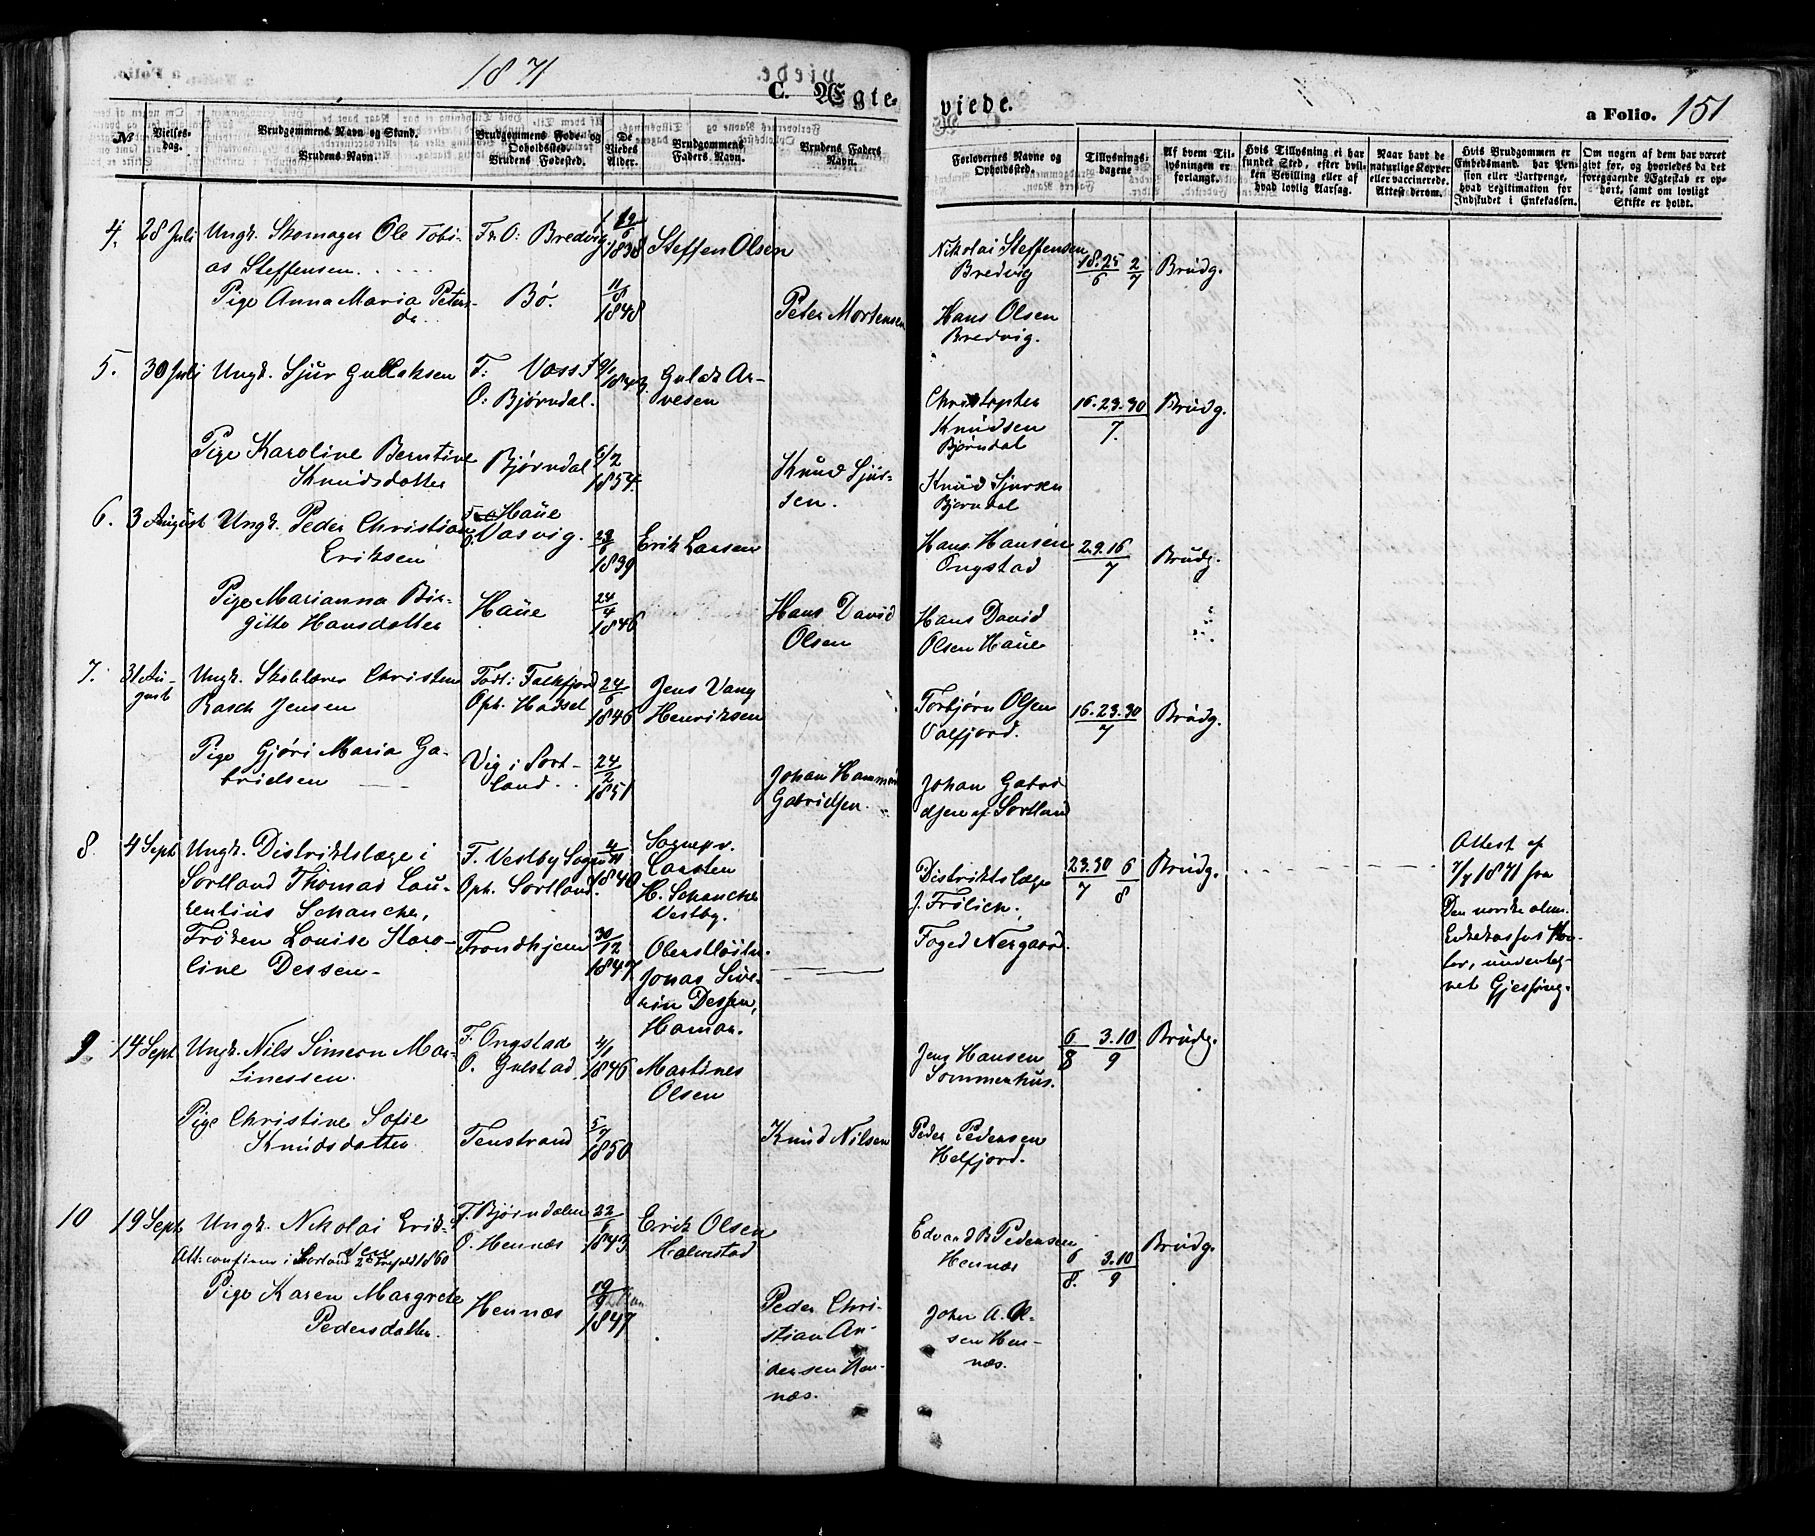 1871
C. Ægte-
viede.
a Folio. 151
№
Vielses-
dag.
Brudgommens Navn og Stand.
Brudens Navn.
Brudgommens Føde- og
Opholdssted.
Brudens Fødested.
De
Viedes
Alder.
Brudgommens
Faders Navn.
Brudens Faders
Navn.
Forlovernes Navne og
Opholdssted.
Tillysnings-
dagene
Af hvem Til-
lysningen er
forlangt.
Hvis Tillysning ei har
fundet Sted, efter hvil-
ken Bevilling eller af
hvad lovlig Aarsag.
Naar havt de
naturlige Kopper
eller vaccinerede.
Attest derom.
Hvis Brudgommen er
Embedsmand, har Pen-
sion eller Vartpenge,
hvad Legitimation for
Indskudet i Enkekassen.
Om nogen af dem har været
gift før, og hvorledes da det
foregaaende Ægteskab er op-
hørt, samt om lovligt
Skifte er holdt.
4. 28 Juli Ungk. Skomager Ole Tobi-
as Steffensen
F. O: Bredvig
1838 Steffen Olsen
Nikolai Steffensen
Bredvig
18.25/6 2/7 Brudg.
Pige Anna Maria Peters-
dr.
Bø. 11/8 1848
Peter Mortensen
Hans Olsen
Bredvig.
5. 30 Juli Ungk. Sjur Gullaksen
F: Voss
O: Bjørndal.
Guldk Ar-
vesen
Christopher
Knudsen
Bjørndal
16.23.30/7. Brudg.
Pige Karoline Berntine
Knudsdatter
Bjørndal 6/2 1854.
Knud Sjur-
sen.
Knud Sjursen
Bjørndal
6. 3 August Ungk. Peder Christian
Eriksen
F. Haue
O. Vasvig. 1839
Erik Larsen
Hans Hansen
Ongstad
2.9.16/7 Brudg.
Pige Marianna Bir-
gitte Hansdatter
Haue 24/4 1846
Hans David
Olsen
Hans David
Olsen Haue
7. 31 Au-
gust Ungk. Skolelærer Christen
Rasch Jensen
Født: Falkfjord
Oph. Hadsel 24/6 1846
Jens Vang
Henriksen
Torbjørn Olsen
Valfjord.
16.23.30/7 Brudg.
Pige Gjøri Maria Ga-
brielsen
Vig i Sort-
land. 24/2 1851
Johan Hammer
Gabrielsen.
Johan Gabri-
elsen af Sortland
8. 4 Sept. Ungk. Distriktslæge i
Sortland Thomas Lau-
rentius Schanche,
F. Vestby Sogn
Oph. Sortland. 4/11 1840
Sognepr.
Carsten
H. Schanche
Vestby.
Distriktslæge
J. Frölich.
23.30/7 6/8 Brudg.
Attest af
7/7 1871 fra
Den norske alm.
Enkekasses Kon-
tor, underteg-
net Gjessing.
Frøken Louise Karo-
line Dessen
Trondhjem 30/12 1847
Oberstløitn.
Jonas Seve-
rin Dessen,
Hamar.
Foged Nergaard.
9. 14 Sept. Ungk. Nils Simern Mar-
tinessen.
F. Ongstad
O. Gulstad 4/1 1846
Martines
Olsen
Jens Hansen
Sommerhus.
6/8 3.10/9 Brudg.
Pige Christine Sofie
Knudsdatter
Tenstrand 5/7 1850
Knud Nilsen
Peder Pedersen
Helfjord.
10 19 Sept. Ungk. Nikolai Erik-
sen
Att: confirm: i Sortland 1860
F. Bjørndalen
O. Hennæs 1843
Erik Olsen
Holmstad
Edvard B Pedersen
Hennæs
6/8. 3.10/9 Brudg.
Pige Karen Margrete
Pedersdatter
Hennæs 19/9 1847
Peder Chri-
stian An-
dersen Hen-
næs.
Johan A. Ol-
sen Hen-
næs.